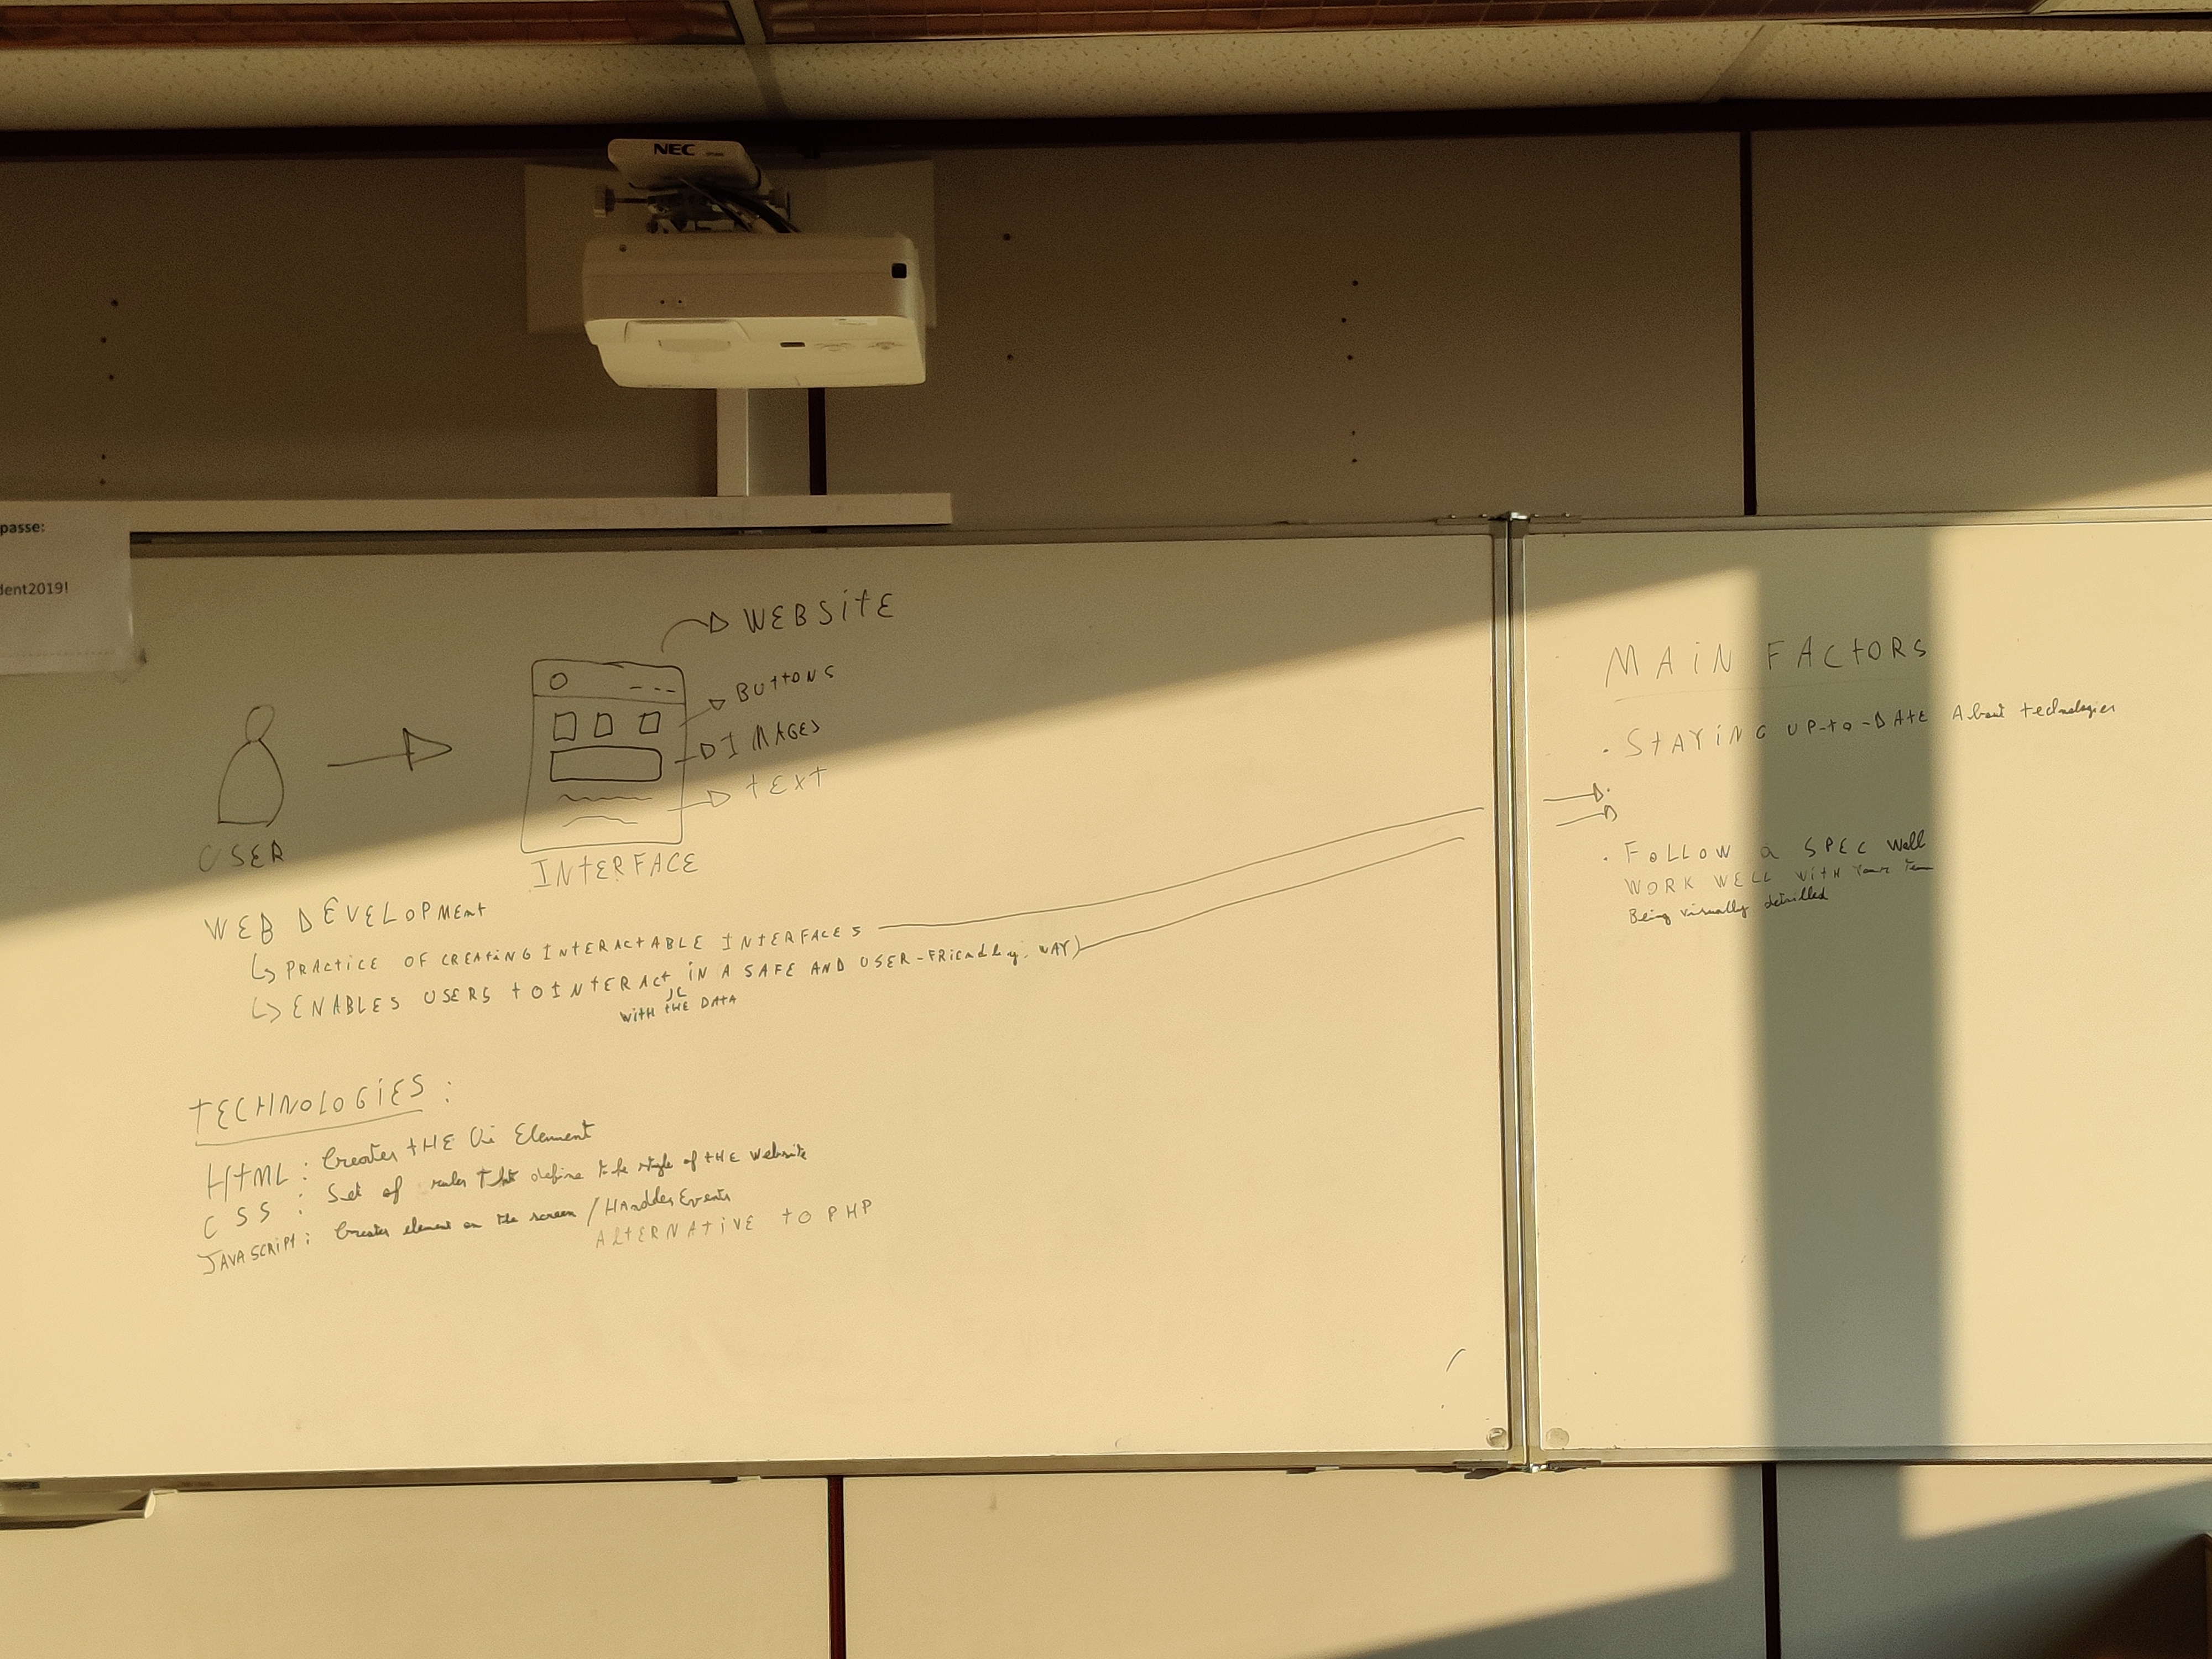 NEC
passe:
dent2019!
WEBSITE
BUTTONS
IMAGES
TEXT
USER
INTERFACE
WEB DEVELOPMEnt
PRACTICE OF CREATING INTERACTABLE INTERFACES
ENABLES USERS TO INTERACT IN A SAFE AND USER-FRIendly WAY)
WITH THE DATA
TECHNOLOGIES :
HTML : Creates tHE Ui Element
CSS : Set of rules That define the style of tHE Website
JAVASCRIPT : Creates element on the screen / HAnddes Events
ALTERNATIVE TO PHP
MAIN FACTORS
. STAYING UP-to-DATE About technologies
. FOLLOW a SPEC Well
WORK WELL WITH Your Team
Being visually detailled